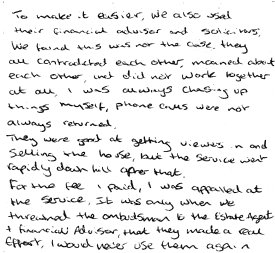 To make it easier, we also used
their financial advisor and solicitors.
We found this was not the case, they
all contradicted each other, moaned about
each other, and did not work together
at all, I was always chasing up
things myself, phone calls were not
always returned.
They were good at getting viewers in and
selling the house, but the service went
rapidly down hill after that.
For the fee I paid, I was appalled at
the service, It was only when we
threatened the ombudsman to the Estate Agent
+ financial Advisor, that they made a real
effort, I would never use them again